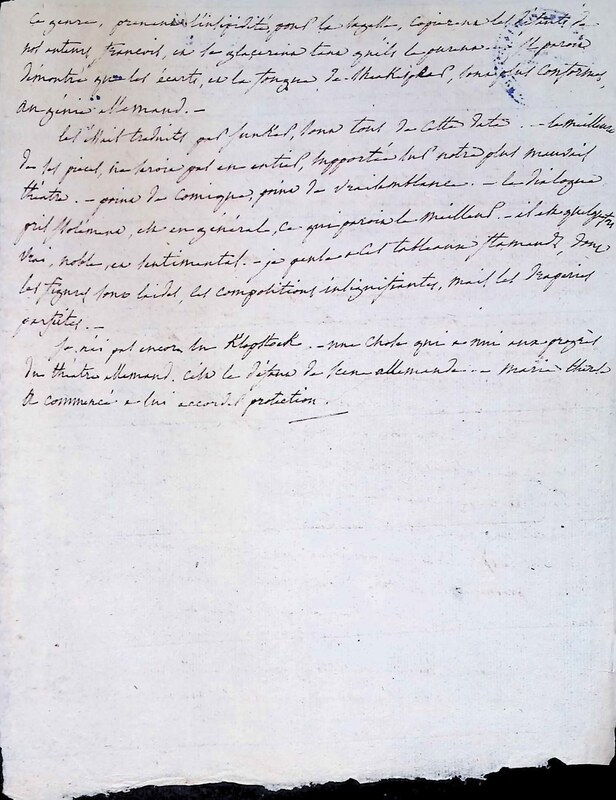 ce genre, prenant l'insipidité, pour la sagesse, copierent les défauts de
nos auteurs françois, et se glacerent tant qu'ils le purent. - il paroit
démontré que les écarts, et la fougue de Shakespear, sont plus conformes,
au génie allemand. -
les traduits par junker, sont tous de cette date. - le meilleur
de ces pieces, ne seroit pas en entier, supportée sur notre plus mauvais
théatre. - point de comique, point de vraisemblance. - le dialogue
pris isolement, est en général, ce qui paroit le meilleur. - il est quelquefois
vrai, noble, et sentimental. - je pense a ces tableaux flamands, dont
les figures sont laides, les compositions insignifiantes, mais les draperies
parfaites. -
Je n'ai pas encore lu Klopstock. - une chose qui a nui aux progrès
du théatre allemand, c'est le défaut de scene allemande. - marie therese
a commencé a lui accorder protection.